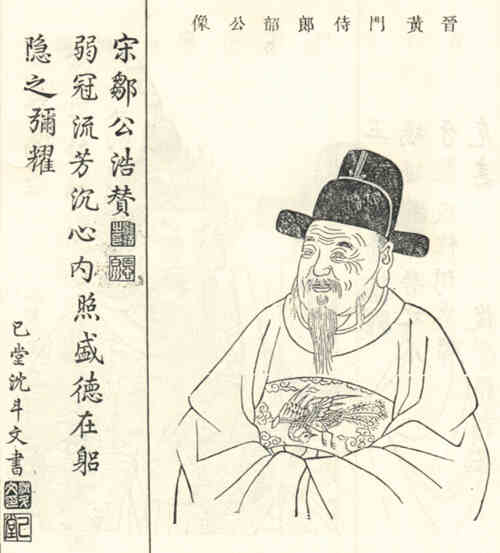 晉黃門侍郎韶公像
宋鄒公浩賛
弱冠流芳沉心内照盛德在躳
隐之彌耀
已堂沈斗文書